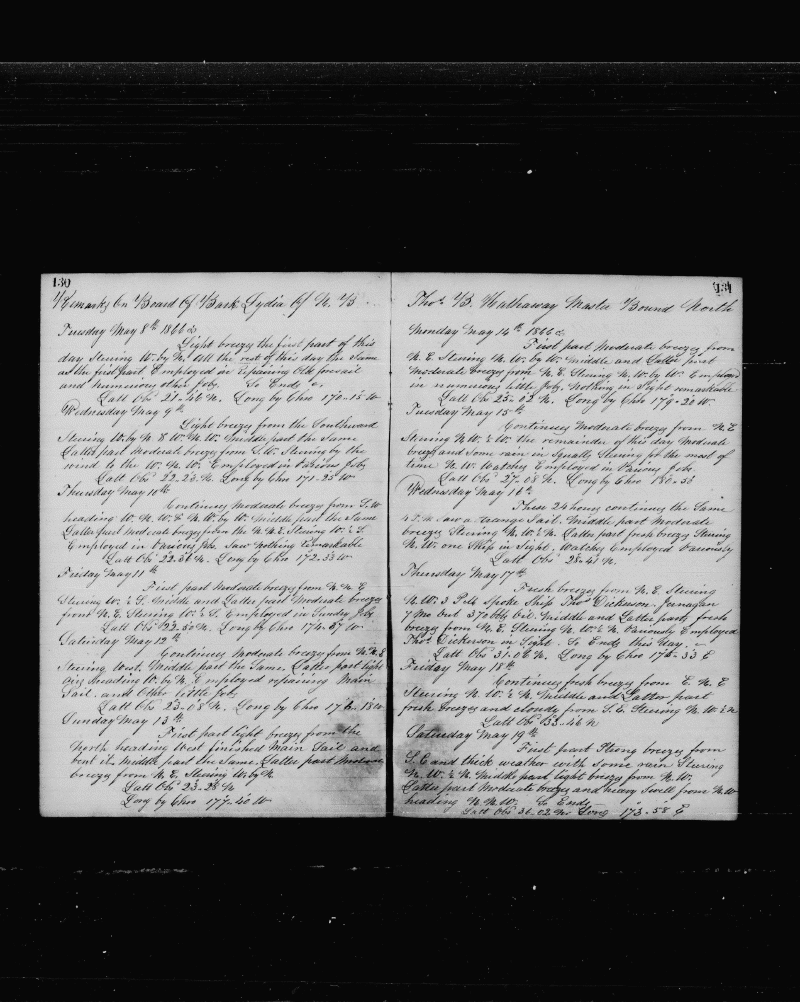 130
Remarks On Board Of Bark Lydia Of N. B
Tuesday May 8th 1866
Light breezy the first part of this
day Steering W. by N. till the rest of this day the Same
as the first part Employed in repairing Old
and numerous other Jobs So Ends
Latt Obs 21-46 N. Long by Chro 170-15 W
Wednesday May 9th
Light breezy from the Southward
Steering W. by N & W. N. W. Middle part the Same
Latter part Moderate breezy from S. W. Steering by the
wind to the W. N. W. Employed in Various Jobs
Latt Obs 22-26 N. Long by Chro 171-25 W
Thursday May 10th
Continues Moderate breezy from S. W
heading W. N. W. & N. W. by W. Middle part the Same
Latter part moderate breezes from the N. N. E. Steering W.
Employed in Various Jobs. Saw nothing remarkable
Latt Obs 22-36 N. Long by Chro 172-33 W
Friday May 11th
First part Moderate breezy from N. N. E
Steering W. Middle and Latter part Moderate breezes
from N. E. Steering W. Employed in Sundry Jobs
Latt Obs 22-50 N. Long by Chro 174-37 W
Saturday May 12th
Continues Moderate breezy from N. N. E
Steering West. Middle part the Same, Latter part light
airs heading W. by N. Employed repairing Main
Sail and Other little Jobs
Latt Obs 23-08 N. Long by Chro 176-18 W
Sunday May 13th
First part light breezy from the
North heading West finished Main Sail and
bent it. Middle part the Same. Latter part Moderate
breezy from N. E. Steering W. by N.
Latt Obs 23-28 N
Long by Chro 177-40 W
131
Thos. B. Hathaway Master Bound North
Monday May 14th 1866
First part Moderate breezes from
N. E. Steering N. W. by W. Middle and Latter part
moderate breezes from N. E. Steering N. W. by W. Employed
in numerous little Jobs, Nothing in Sight remarkable
Latt Obs 25-02 N. Long by Chro 179-20 W.
Tuesday May 15th
Continues Moderate breezy from N. E
Steering N. W. & W. the remainder of this day Moderate
breezes and some rain in Squalls Steering for the most of
time N. W. Watches Employed in Various Jobs
Latt Obs 27-08 N. Long by Chro 180-53
Wednesday May 16th
These 24 hours continues the Same
4 P. M. saw a strange Sail. Middle part Moderate
breezes Steering N. W. & N. Latter part fresh breezy Steering
N. W. one Ship in Sight. Watches Employed Variously
Latt Obs 28-41 N.
Thursday May 17th
Fresh breezy from N. E. Steering
N. W. 3 P. M. Spoke Ship Thos. Dickason. Jernagan
7 Mo out 370 bbls Oil. Middle and Latter part fresh
breezy from N. E. Steering N. W. & N. Variously Employed
Thos. Dickerson in Sight. So Ends this day.
Latt Obs 31-06 N. Long by Chro 176-33 E
Friday May 18th
Continues fresh breezy from E. N. E
Steering N. W. & N Middle and Latter part
fresh breezes and cloudy from S. E. Steering N. W. & N
Latt Obs 33-46 N
Saturday May 19th
First part Strong breezy from
S. E and thick weather with Some rain Steering
N. W. & N. Middle part light breezy from N. W.
Latter part Moderate breezes and heavy Swell from N. W
heading N. N. W. So Ends
Latt Obs 36-02 N Long 173-58 E